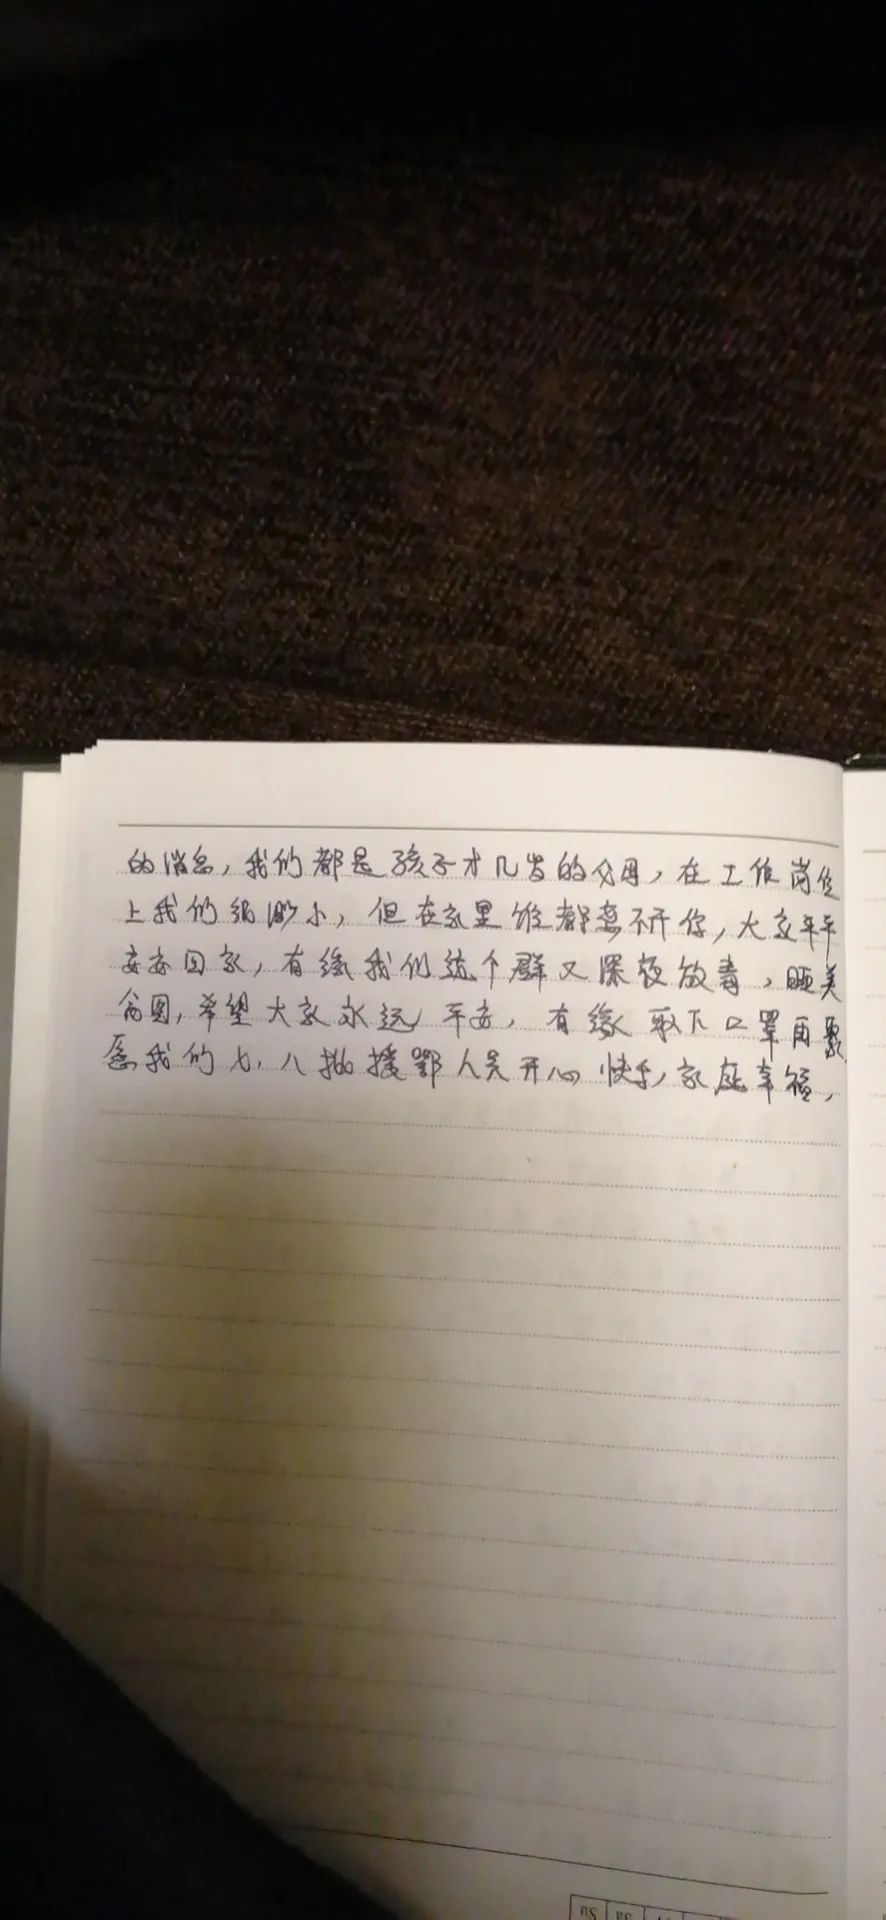 的消息，我们都是孩子才几岁的父母，在工作岗位
上我们很渺小，但在家里谁都离不开你，大家平平
安安回家，有缘我们这个群又深夜放毒，晒美
图，希望大家永远平安，有缘取下口罩再聚
愿我们七、八批援鄂人员开心快乐，家庭幸福，